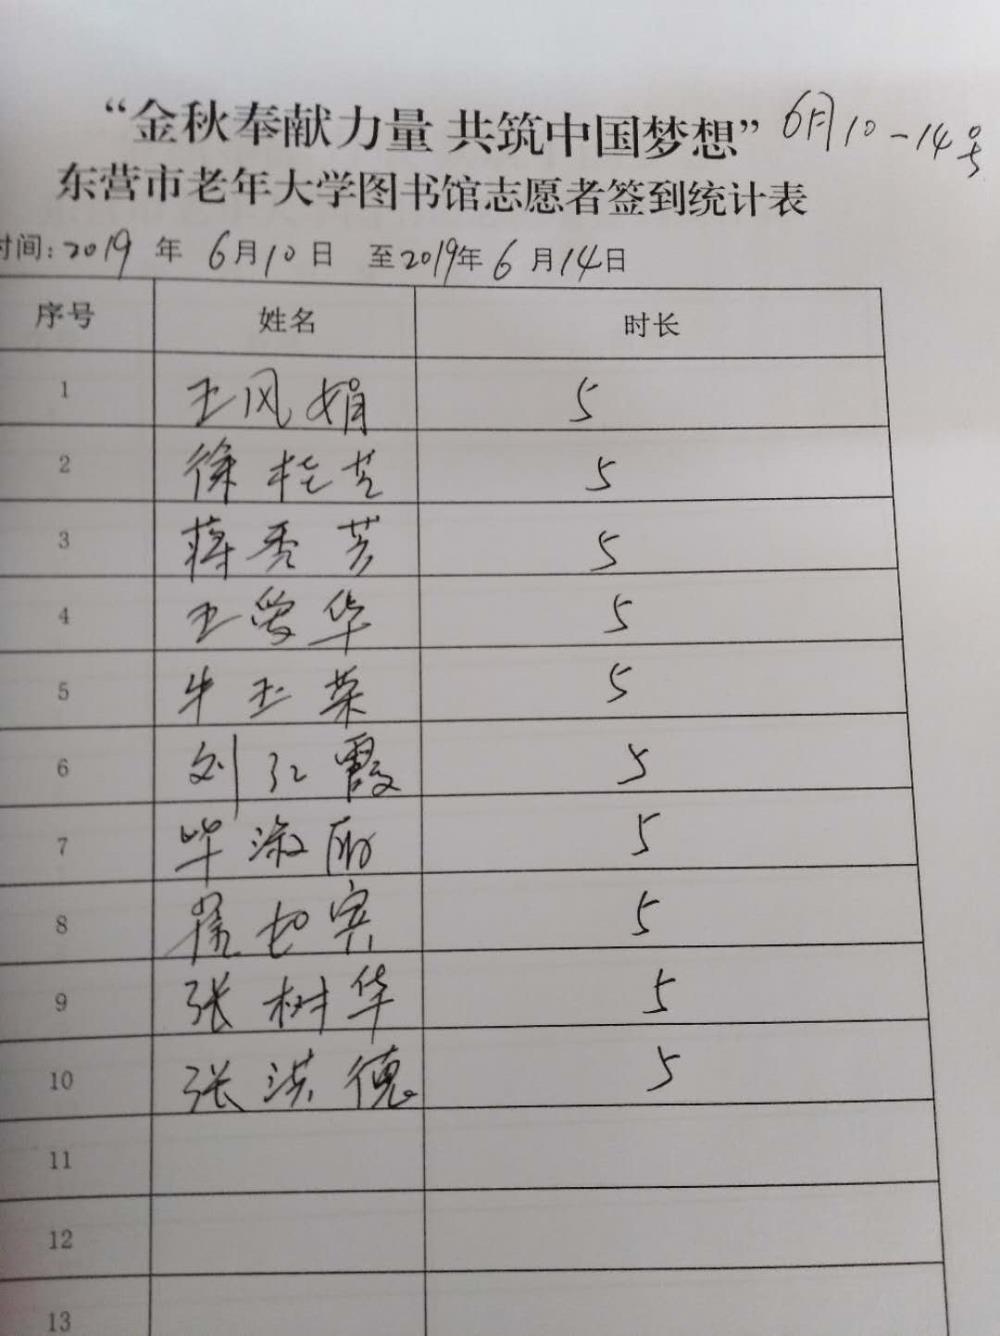 “金秋奉献力量 共筑中国梦想” 6月10-14号
东营市老年大学图书馆志愿者签到统计表
时间:2019 年 6月10日 至2019年6月14日
序号 姓名 时长
1 王风娟 5
2 徐桂芝 5
3 蒋秀芳 5
4 王爱华 5
5 牛玉荣 5
6 刘红霞 5
7 毕淑丽 5
8 5
9 张树华 5
10 张洪德 5
11
12
13